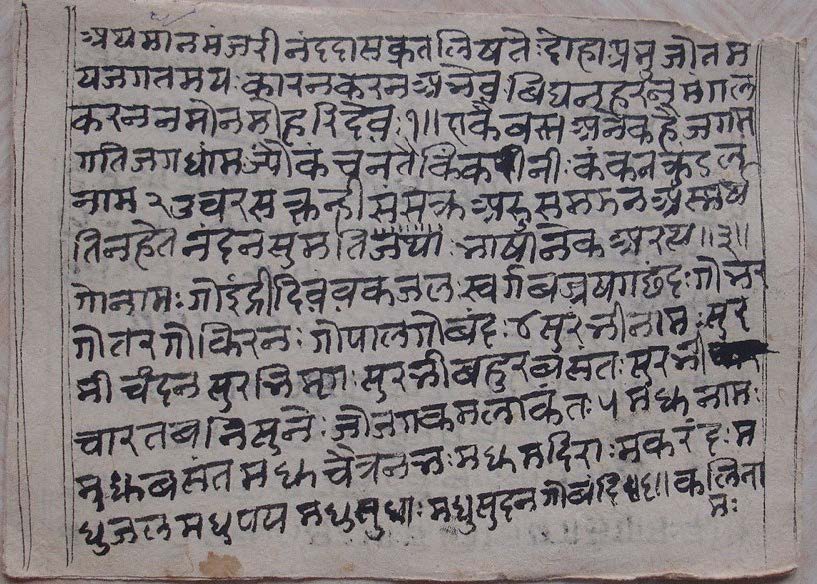 अथ मानमंजरी नंददास कृत लिषते: दोहा प्रभु जोत म
य जगत मय: कारन करन अनेव: बिघन हरन मंगल
करन नमो नमो हरि देव: १॥ एकै बस्त अनेक है जगम
गति जग धांम ज्यौ कंचन तै किंकनी: कंकन कुंडल
नाम २ उचर सकत नही संसक्त अरु समझन असमथ
तिन हेत नंदन सुमति जथा: भाषानेक अरथ॥३॥
गो नाम: गो इंद्री दिव वक जल: स्वर्ग बज्र षग छंद: गो
गो तर गो किरन: गोपाल गोबंद: ४ सुरभी नाम: सुर
भी चंदन सुरभि मृग: सुरभी बहुर बसंत: सुरभी
चारत बन सुने: जो जग कमलाकंत: ५ मधु नाम:
मधु बसंत मधु चैत्र नभ: मधु मदिरा: मकरंद: म
धु जल मधु पय मधु सुधा: मधुसुदन गोबंद॥ कलि ना
म: